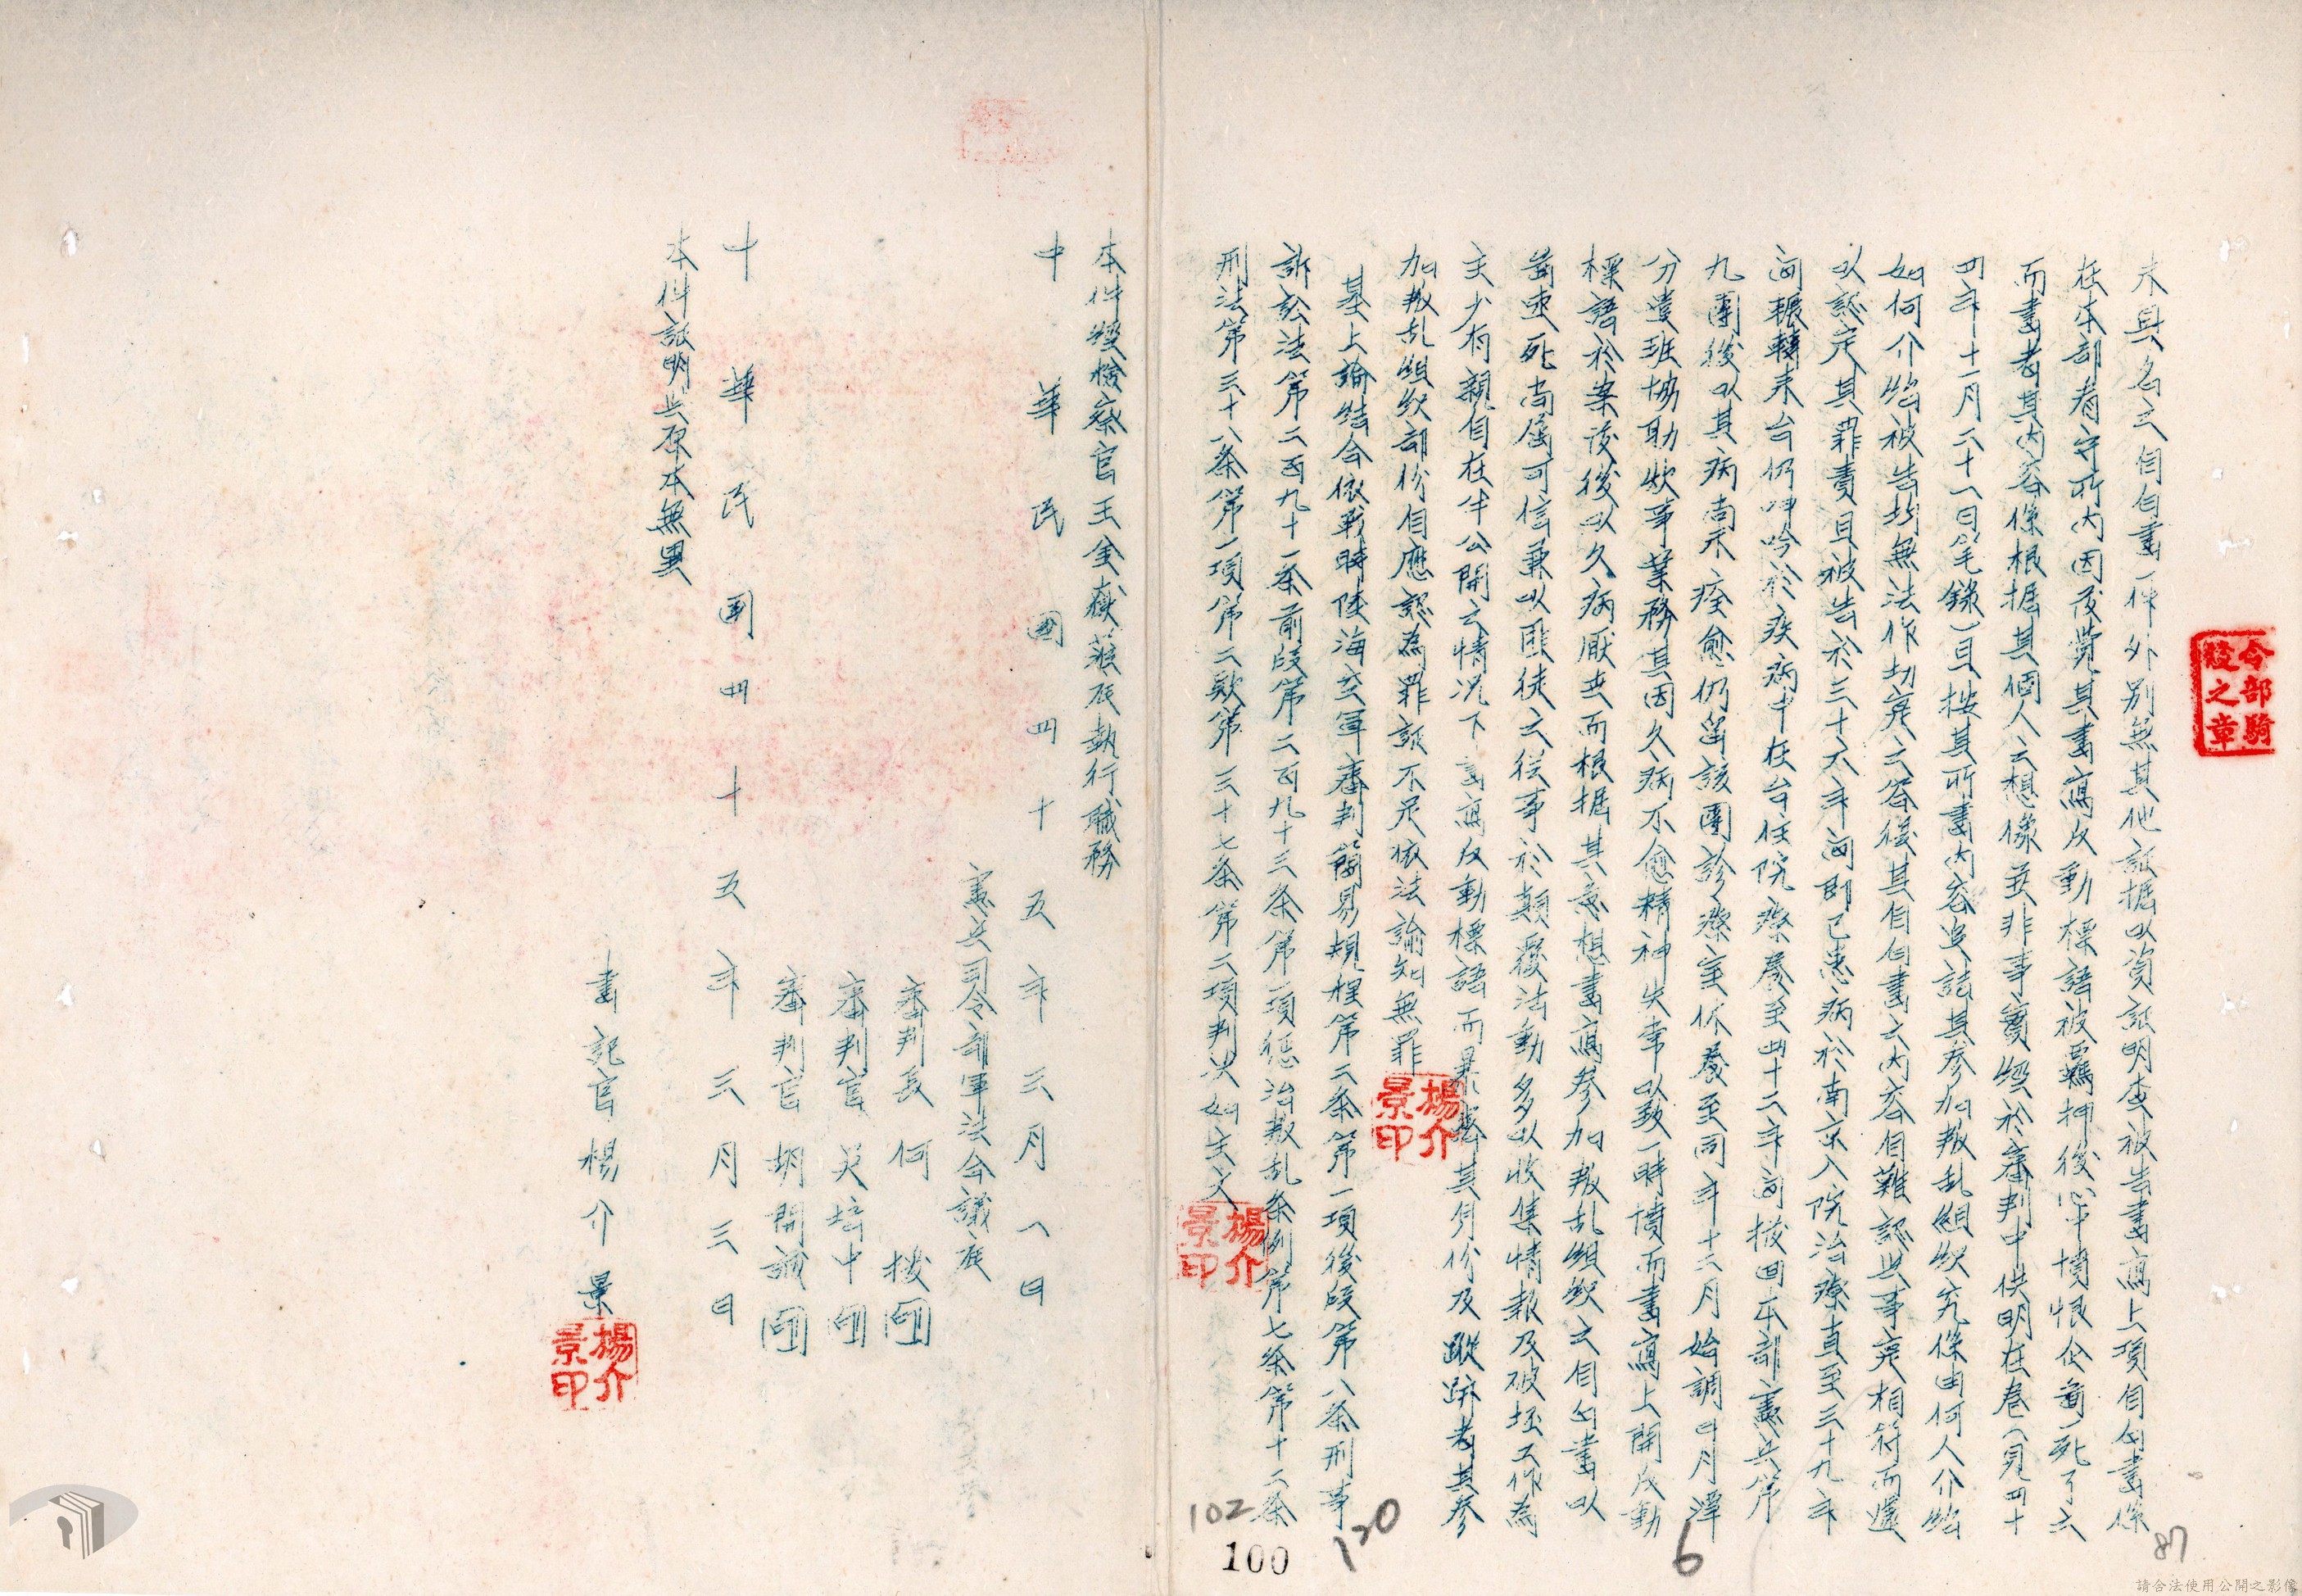 未具名之自白書一件外別無其他証据以資証明查被告書寫上項自白書係
在本部看守所內因後覺其書寫反動標語被羈押後心中憤恨企圖一死了之
而書者其內容係根据其個人之想像並非事實經於審判中供明在卷(見四十
四年十一月二十八日筆錄)且按其所書內容追詰其參加叛乱組織究係由何人介紹
如何介紹被告均無法作切實之答復其自白書之內容自難認與事實相符而遽
以認定其罪責且被告於三十六年間即已患病於南京入院治療直至三十九年
間輾轉來台仍呻吟於疾病中在台住院療養至四十二年間拔回本部憲兵第
九團後以其病尚未痊愈仍留該團診療室休養至同年十二月始調四月潭
分遣班協助炊事業務其因久病不愈精神失常以致一時憤而書寫上開反動
標語於案後後以久病厭世而根据其意想書寫參加叛乱組織之自白書以
圖速死尚屬可信兼以匪徒之從事於顛覆活動多以收集情報及破坯工作為
主少有親自在半公開之情況下書寫反動標語而暴露其身份及蹤跡者其參
加叛乱組織部份自應認為罪証不足依法諭知無罪
楊介景印
基上論結合依戰時陸海空軍審判簡易規程第二条第一項後段第八条刑事
訴訟法第二百九十一条前段第二百九十三条第一項懲治叛乱条例第七条第十二条
刑法第三十八条第一項第二款第三十七条第二項判決如主文
楊介景印
本件經檢察官王金嶽蒞庭執行職務
中華民國四十五年三月八日
憲兵司令部軍法合議庭
審判長何 拔印
審判官吳培中印
審判官胡開誠印
中華民國四十五年三月三日
本件証明與原本無異
書記官楊介景
楊介景印
令部騎
殳之章
87
6
120
102
100
請合法使用公開之影像